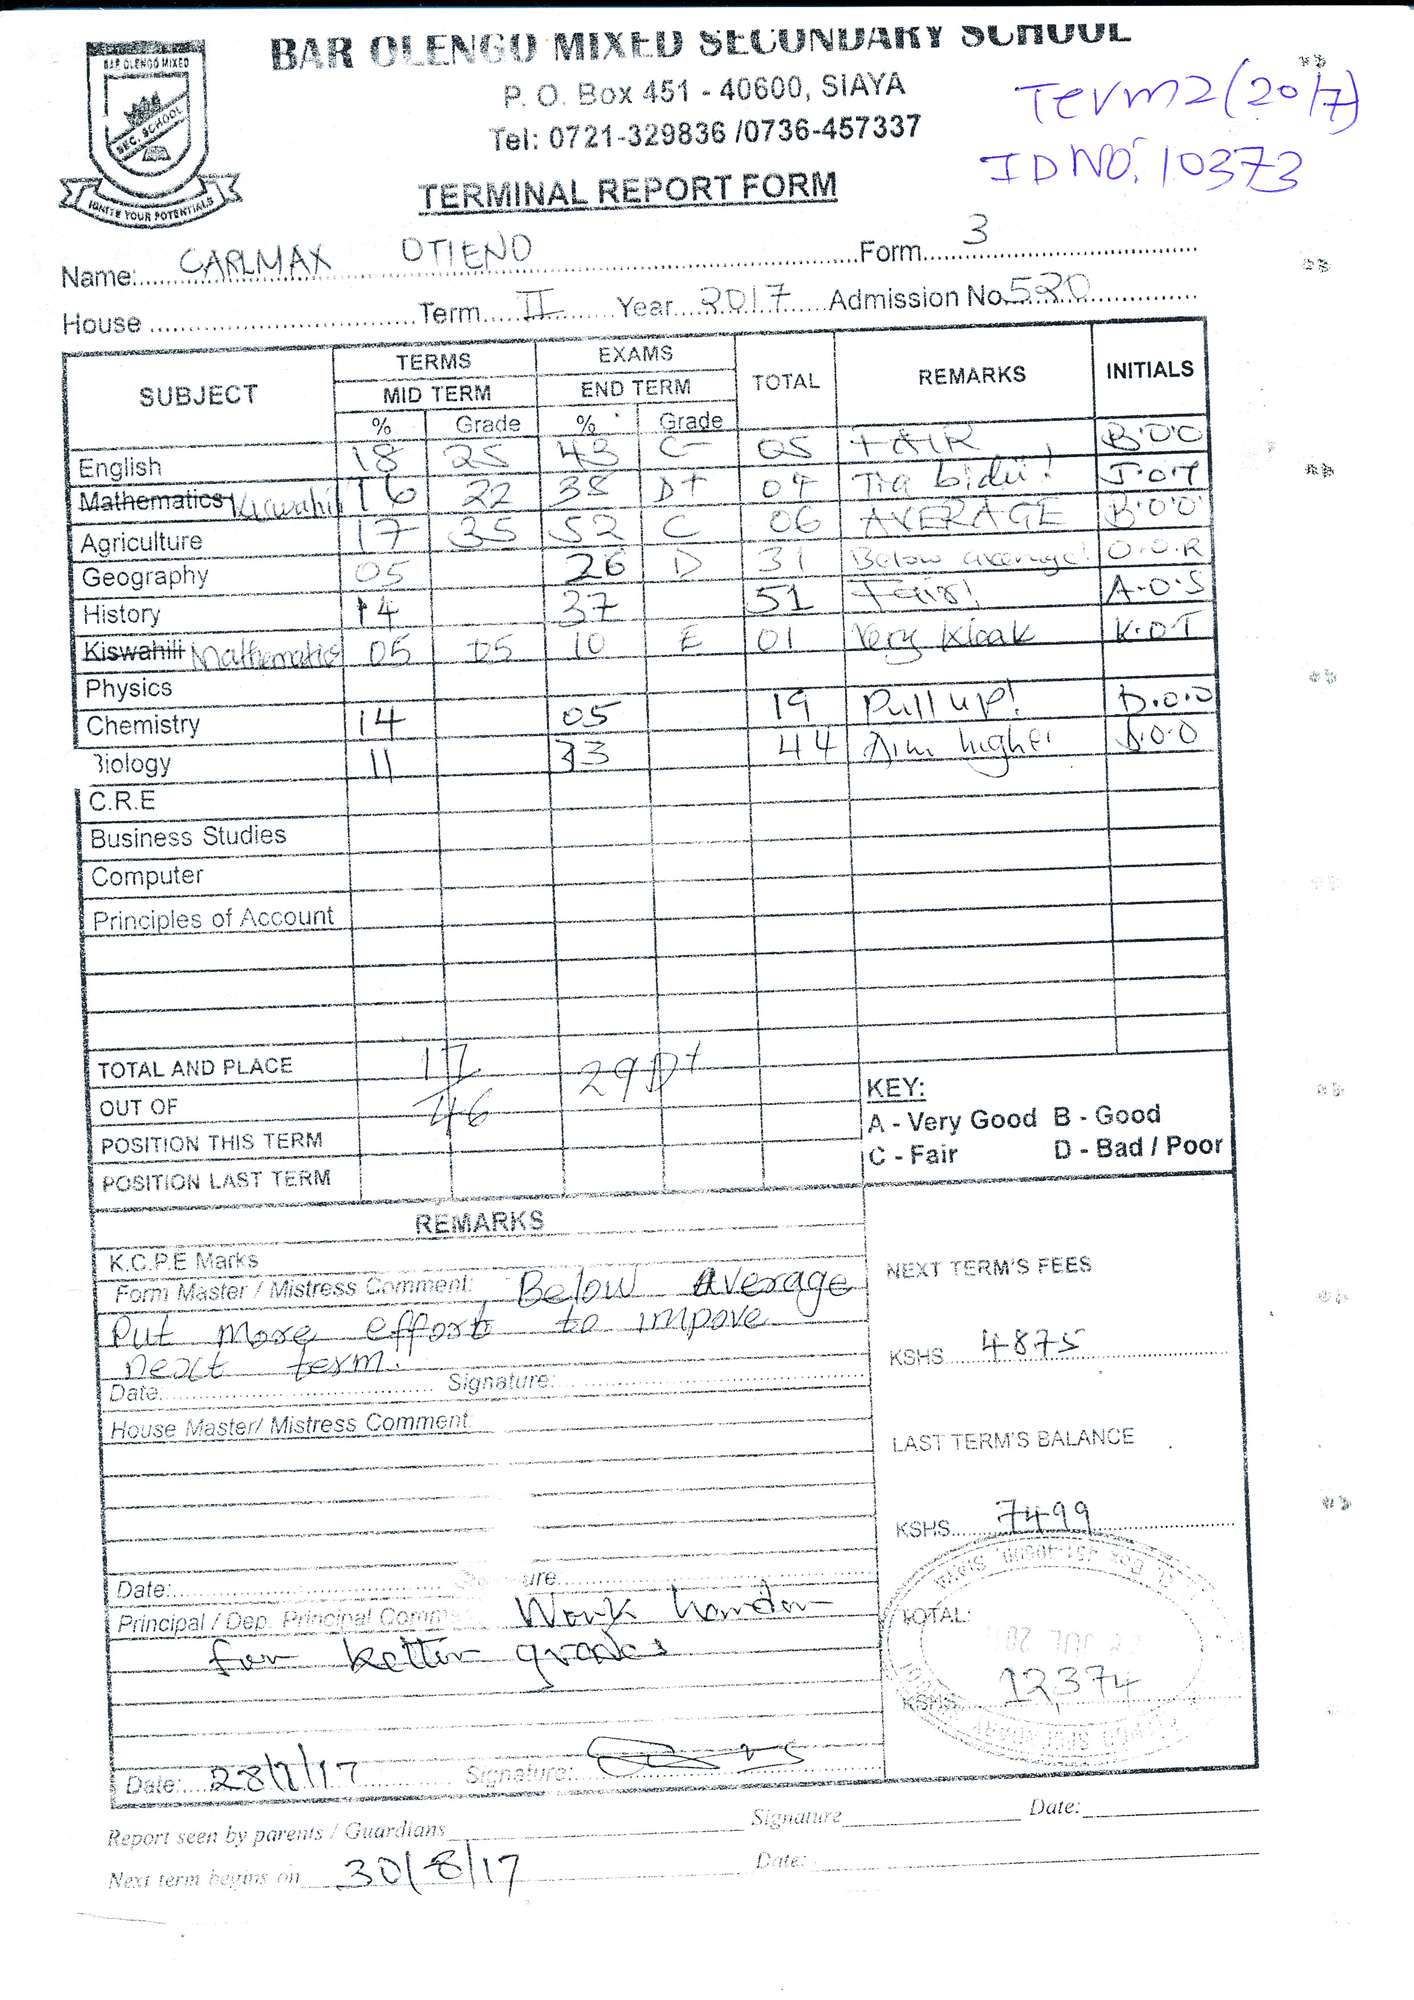 BAR OLENGO MIXED SECONDARY SCHOOL
BAR OLENGO MIXED
SEC. SCHOOL
IGNITE YOUR POTENTIALS
P. O. Box 451 - 40600, SIAYA
Tel: 0721-329836 /0736-457337
Term 2 (2017)
ID NO: 10373
TERMINAL REPORT FORM
Name: CARLMAX OTIENO Form 3
House Term II Year 2017 Admission No. 520
SUBJECT TERMS EXAMS TOTAL REMARKS INITIALS
MID TERM END TERM
% Grade % Grade
English 18 25 43 C- 05 FAIR B.O.O
Mathematics Kiswahili 16 22 38 D+ 04 Tia bidii! J.O.T
Agriculture 17 35 52 C 06 AVERAGE B.O.O
Geography 05 26 D 31 Below average! O.O.R
History 14 37 51 Fair! A.O.S
Kiswahili Mathematics 05 05 10 E 01 Very Weak K.O.T
Physics
Chemistry 14 05 19 Pull up! D.O.O
Biology 11 33 44 Aim higher D.O.O
C.R.E
Business Studies
Computer
Principles of Account
TOTAL AND PLACE 17 29 D+
OUT OF 46
POSITION THIS TERM
POSITION LAST TERM
KEY:
A - Very Good B - Good
C - Fair D - Bad / Poor
REMARKS
K.C.P.E Marks
Form Master / Mistress Comment: Below Average
Put more effort to impove
next term.
Date: Signature:
House Master/ Mistress Comment
Date: ure
Principal / Dep. Principal Comme Work harder
for better grades
Date: 28/7/17 Signature:
NEXT TERM'S FEES
KSHS 4875
LAST TERM'S BALANCE
KSHS 7499
TOTAL:
KSHS 12374
Report seen by parents / Guardians Signature Date:
Next term begins on 30/8/17 Date: